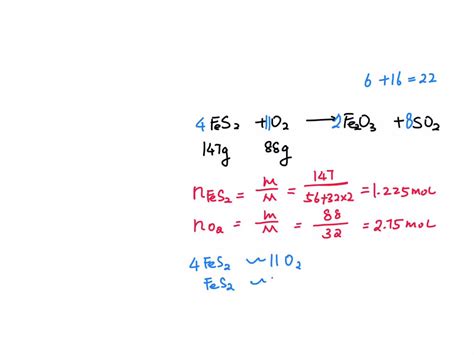 6 + 16 = 22
4FeS₂ + 11O₂ ⟶ 2Fe₂O₃ + 8SO₂
147g 88g
nFeS₂ = m/M = 147/(56+32×2) = 1.225 mol
nO₂ = m/M = 88/32 = 2.75 mol
4FeS₂ ~ 11O₂
FeS₂ ~